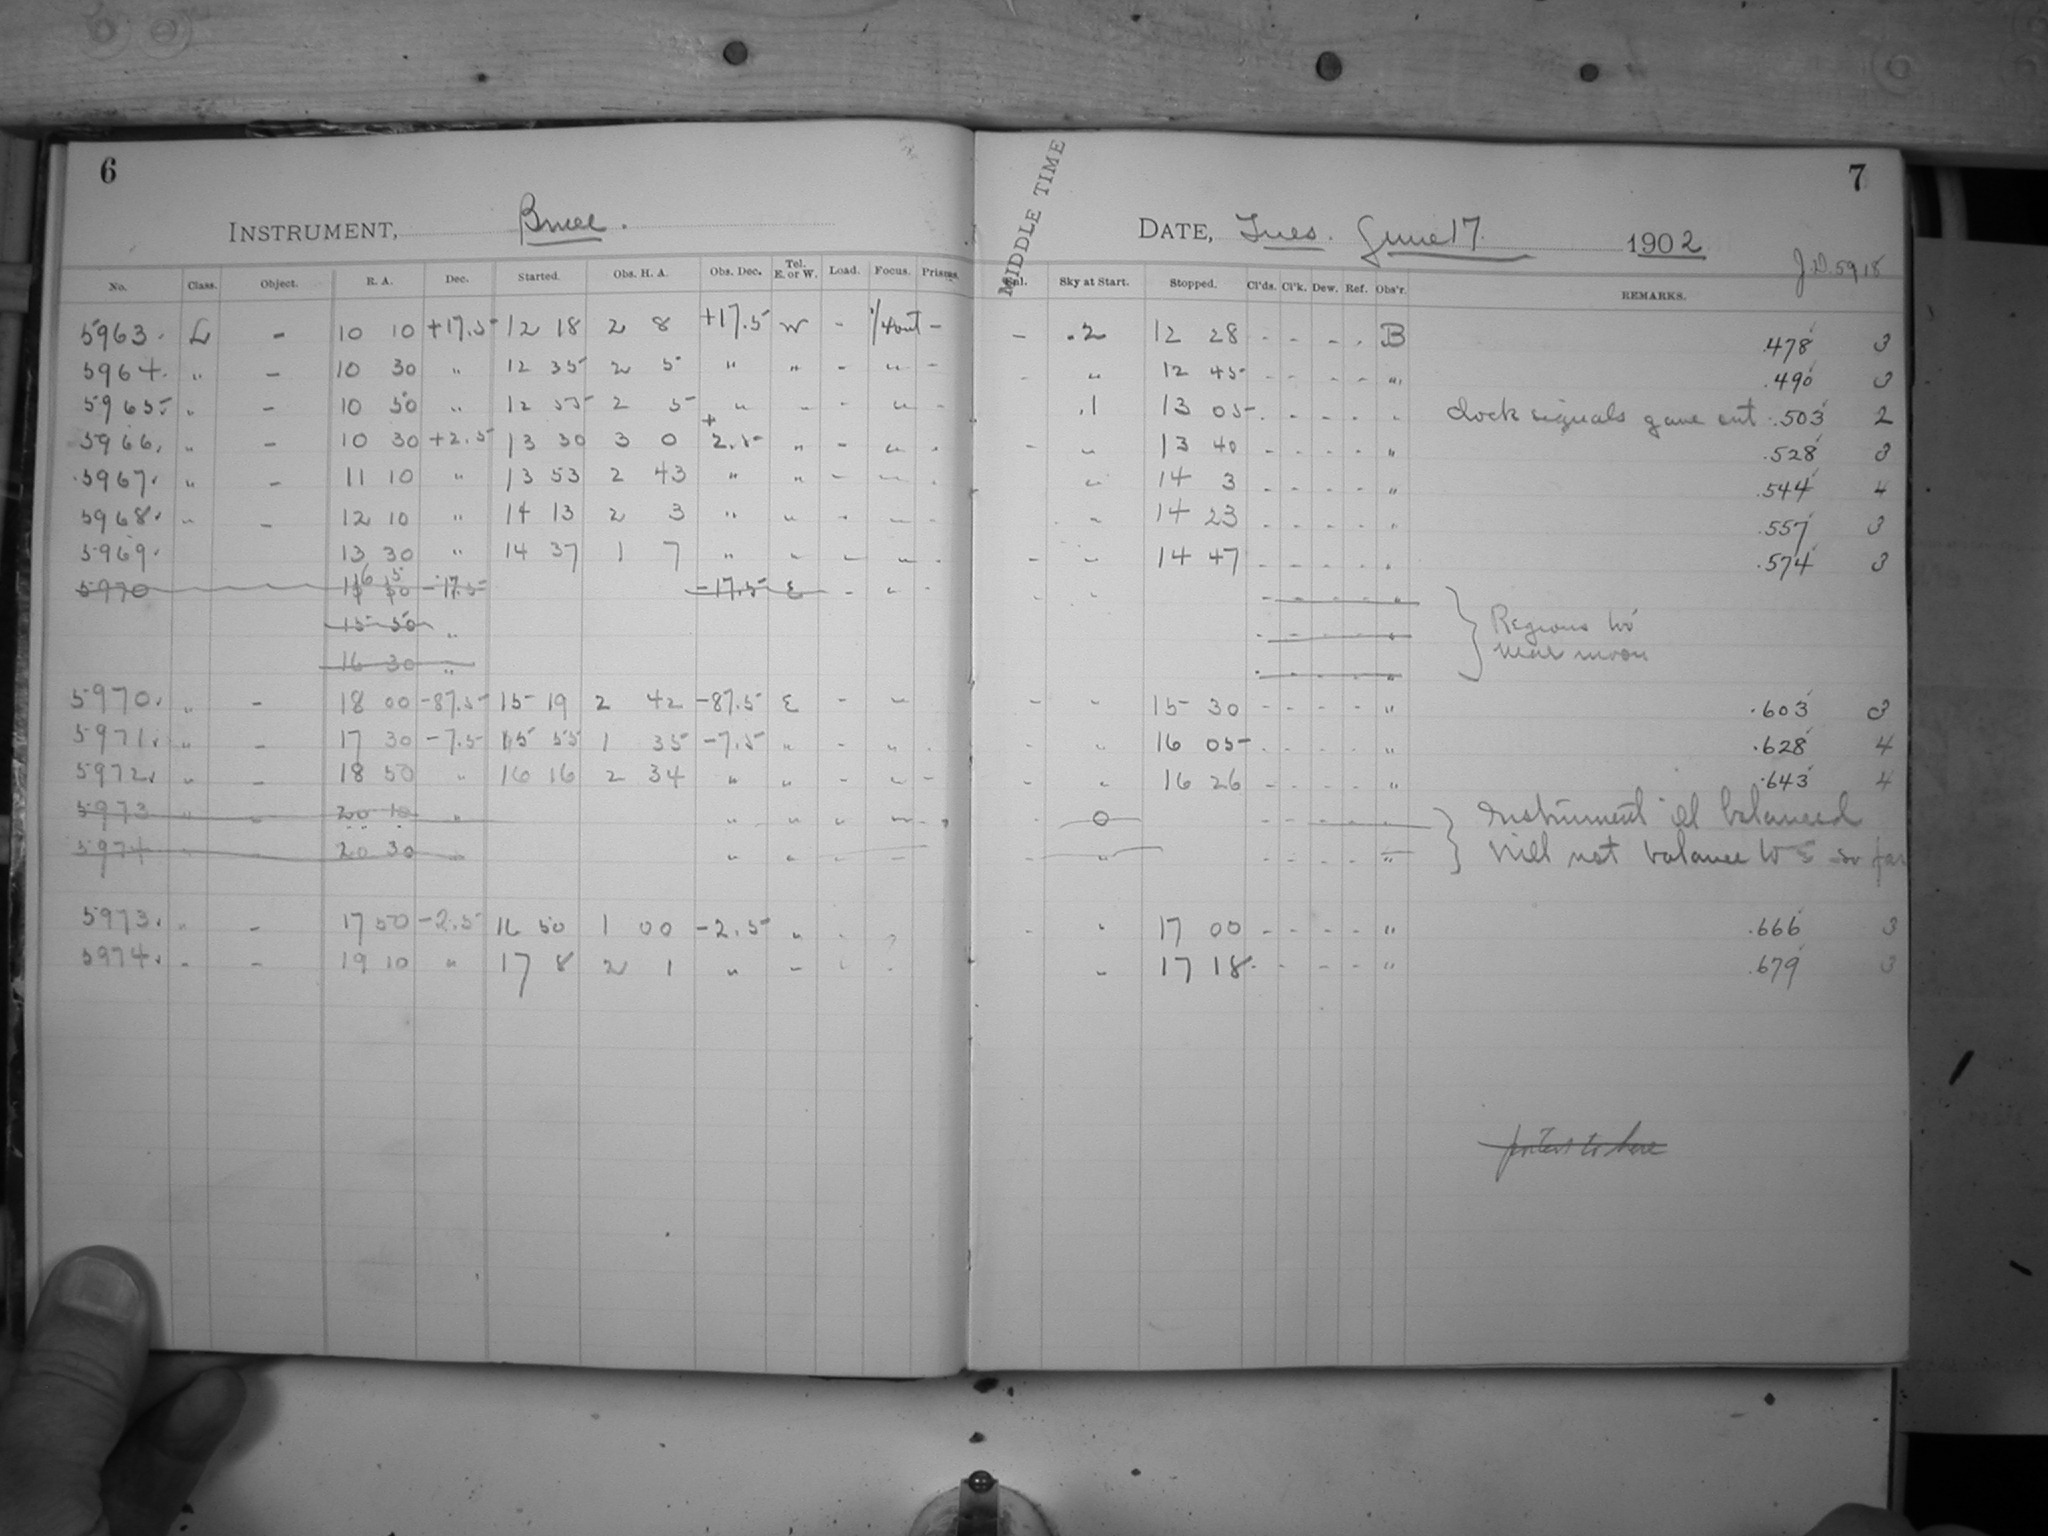 6
MIDDLE TIME
7
INSTRUMENT, Bruce.
DATE, Tues. June 17. 1902
J.D. 5918
No. Class. Object. R. A. Dec. Started. Obs. H. A. Obs. Dec. Tel. E. or W. Load. Focus. Prisms. Enl. Sky at Start. Stopped. Cl'ds. Cl'k. Dew. Ref. Obs'r. REMARKS.
5963. L - 10 10 +17.5 12 18 2 8 +17.5 W - 1/4 out - - .2 12 28 - - - - B .478 3
5964. " - 10 30 " 12 35 2 5 " " - " - - " 12 45 - - - - " .490 3
5965. " - 10 50 " 12 55 2 5 " " - " - - .1 13 05 - - - - " Clock signals gave out .503 2
5966. " - 10 30 +2.5 13 30 3 0 +2.5 " - " - - " 13 40 - - - - " .528 3
5967. " - 11 10 " 13 53 2 43 " " - " - " 14 3 - - - - " .544 4
5968. " - 12 10 " 14 13 2 3 " " - " - " 14 23 - - - - " .557 3
5969. 13 30 " 14 37 1 7 " " - " - - " 14 47 - - - - " .574 3
5970 -17.5 -17.5 E - " - - " - - - - "
15 50 " - - - - " Regions too
16 30 " - - - - " near moon
5970. " - 18 00 -87.5 15 19 2 42 -87.5 E - " - " 15 30 - - - - " .603 3
5971. " - 17 30 -7.5 15 55 1 35 -7.5 " - " - - " 16 05 - - - - " .628 4
5972. " - 18 50 " 16 16 2 34 " " - " - - " 16 26 - - - - " .643 4
5973 " - 20 10 " " " " " - - 0 - - - - " Instrument ill balanced
5974 - 20 30 " " " - - - " - - - - " Will not balance to S so far
5973. " - 17 50 -2.5 16 50 1 00 -2.5 " - - - " 17 00 - - - - " .666 3
5974. - - 19 10 " 17 8 2 1 " - - - " 17 18 - - - - " .679 3
to here